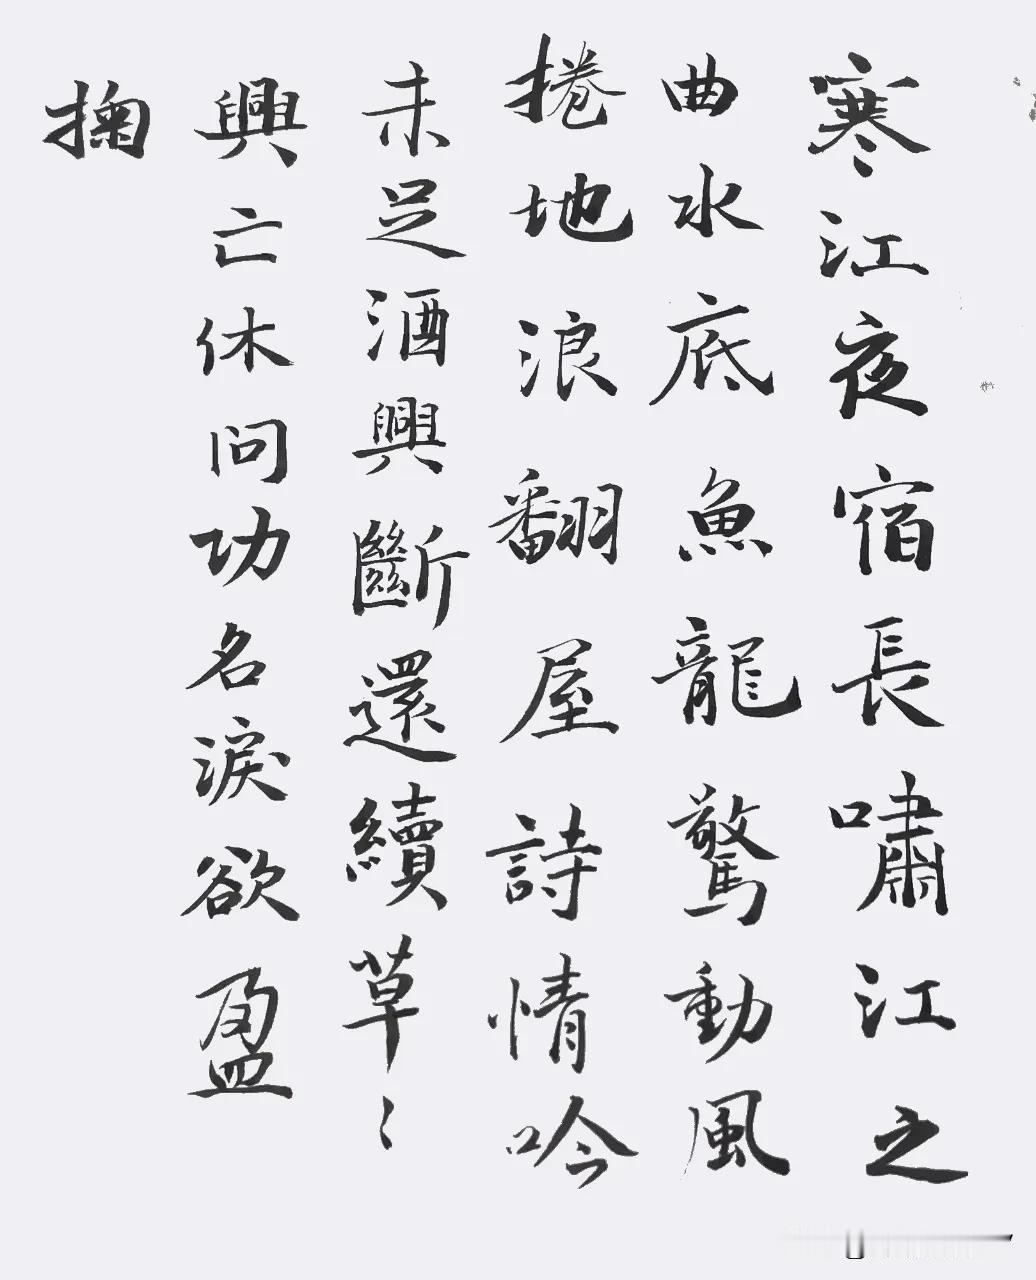 寒江夜宿長嘯江之
曲水底魚龍驚動風
捲地浪翻屋詩情吟
未足酒興斷還續草〻
興亡休问功名淚欲盈
掬